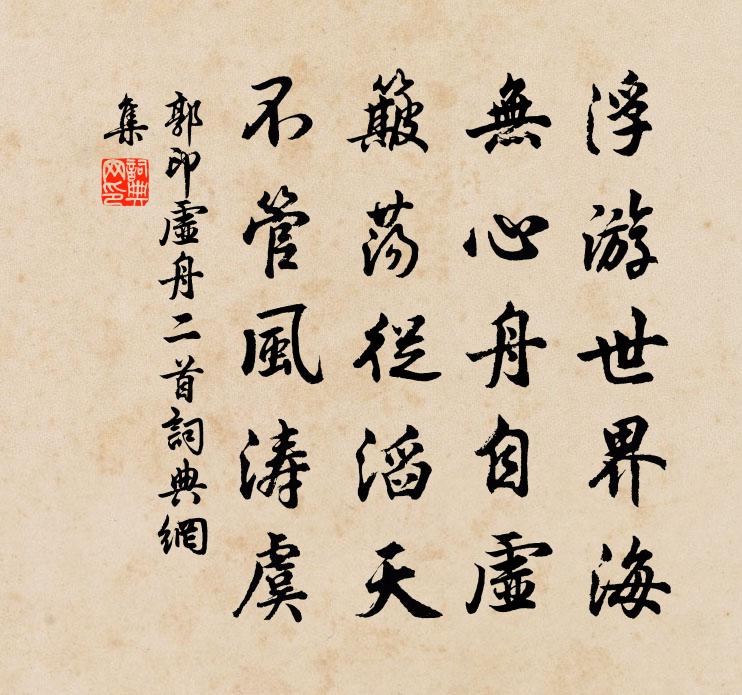 浮游世界海
無心舟自虛
簸荡從滔天
不管風涛虞
郭印虛舟二首詞典網
集
詞典
网印